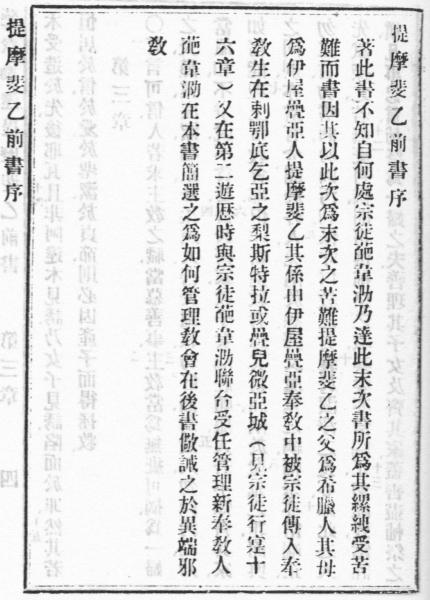 提摩斐乙前書序
著此書不知自何處宗徒葩韋泐乃達此末次書所爲其縲絏受苦
難而書因其以此次爲末次之苦難提摩斐乙之父爲希臘人其母
爲伊屋疊亞人提摩斐乙其係由伊屋疊亞奉敎中被宗徒傳入奉
敎生在剌鄂底乞亞之梨斯特拉或疊兒微亞城(見宗徒行寔十
六章)又在第二遊歷時與宗徒葩韋泐聯台受任管理新奉敎人
葩韋泐在本書簡選之爲如何管理敎會在後書儆誡之於異端邪
敎
提摩斐乙前書序